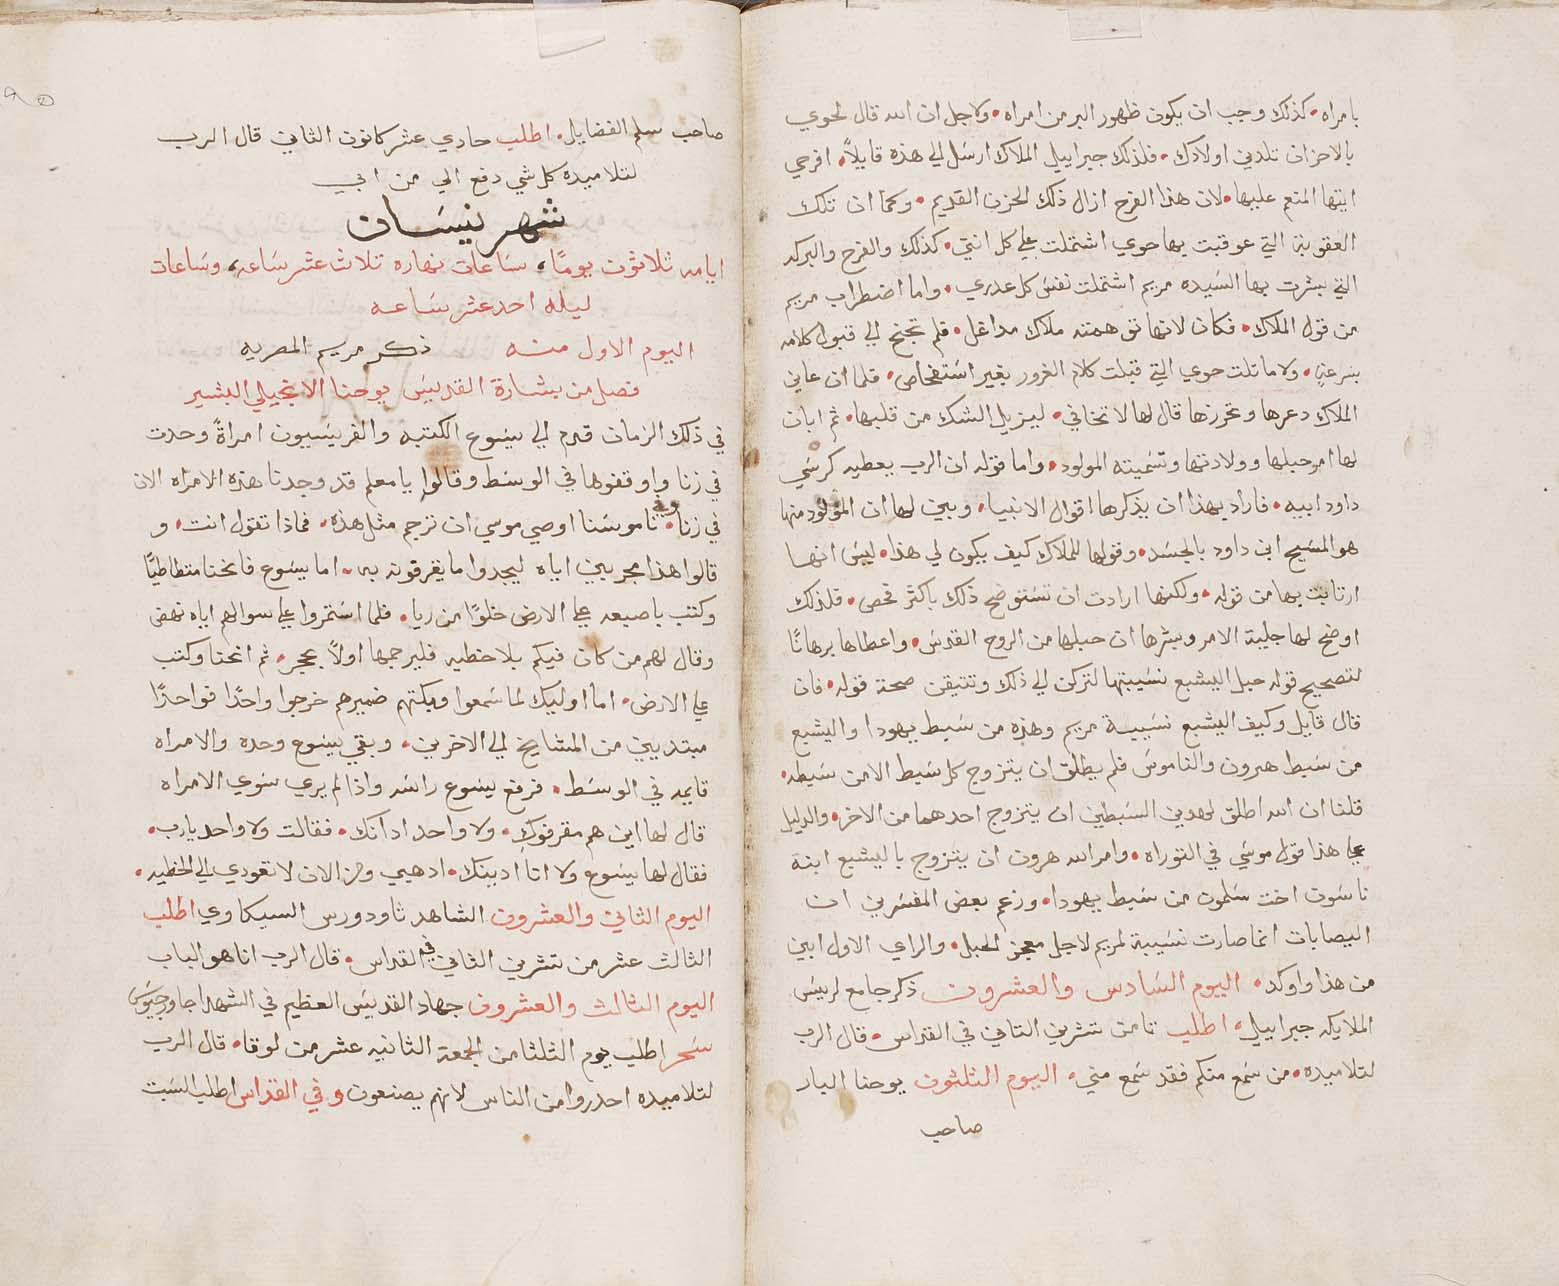 بامراه • كذلك وجب ان يكون ظهور البر من امراه • ولاجل ان الله قال لحوي
بالاحزان تلدين اولادك • فلذلك جبراييل الملاك ارسل الي هذه قايلاً • افرحي
ايتها المنعم عليها • لان هذا الفرح ازال ذلك الحزن القديم • وكما ان تلك
العقوبة التي عوقبت بها حوي اشتملت علي كل انثي • كذلك والفرح والبركه
التي بشرت بها السيده مريم اشتملت نفس كل عدري • واما اضطراب مريم
من قول الملاك • فكان لانها توهمته ملاك مداغل • فلم تجنح الي قبول كلامه
بسرعةٍ • ولا ماتلت حوي التي قبلت كلام الغرور بغير استفحاص • فلما ان عاين
الملاك دعرها وتحرزها قال لها لا تخافي • ليزيل الشك من قلبها • ثم ابان
لها امر حبلها وولادتها وتسميته المولود • واما قوله ان الرب يعطيه كرسي
داود ابيه • فاراد بهذا ان يذكرها اقوال الانبيا • وبين لها ان المولود منها
هو المسيح ابن داود بالجسد • وقولها للملاك كيف يكون لي هذا • ليس انها
ارتابت بها من قوله • ولكنها ارادت ان تستوضح ذلك باكثر فحص • فلذلك
اوضح لها جلية الامر وبشرها ان حبلها من الروح القدس • واعطاها برهانًا
لتصحيح قوله حبل اليشبع نسيبتها لتركن الي ذلك وتتيقن صحة قوله • فان
قال قايل وكيف اليشبع نسيبة مريم وهذه من سبط يهودا واليشبع
من سبط هرون والناموس فلم يطلق ان يتزوج كل سبط الا من سبطه •
قلنا ان الله اطلق لهدين السبطين ان يتزوج احدهما من الاخر • والدليل
علي هذا قول موسي في التوراه • وامر الله هرون ان يتزوج باليشبع ابنة
ناسون اخت سلمون من سبط يهودا • وزعم بعض المفسرين ان
اليصابات انما صارت نسيبة لمريم لاجل معجز الحبل • والراي الاول ابين
من هذا واوكد • اليوم السادس والعشرون ذكر جامع لرييس
الملايكه جبراييل • اطلب تامن تشرين التاني في القداس • قال الرب
لتلاميده • من سمع منكم فقد سمع مني • اليوم الثلثون يوحنا البار
صاحب
صاحب سلم الفضايل • اطلب حادي عشر كانون الثاني قال الرب
لتلاميده كل شي دفع الي من ابي
شهر نيسان
ايامه ثلاثون يومًا، ساعات نهاره تلاث عشر ساعه، وساعات
ليله احد عشر ساعه
اليوم الاول منه ذكر مريم المصريه
فصل من بشارة القديس يوحنا الانجيلي البشير
في ذلك الزمان قدم الي يسوع الكتبه والفريسيون امراةً وجدت
في زنا واوقفوها في الوسط وقالوا يا معلم قد وجدنا هذه الامراه الان
في زنا • وفي ناموسنا اوصي موسي ان ترجم مثل هذه • فماذا تقول انت • و
قالوا هذا مجربين اياه ليجدوا ما يقرفونه به • اما يسوع فانحنا متطاطيًا
وكتب باصبعه علي الارض خلوًا من ريا • فلما استمروا علي سوالهم اياه نهض
وقال لهم من كان فيكم بلا خطيه فليرجمها اولاً بحجر • ثم انحنا وكتب
علي الارض • اما اوليك لما سمعوا ويبكتهم ضميرهم خرجوا واحدًا فواحدًا
مبتديين من المشايخ الي الاخرين • وبقي يسوع وحده والامراه
قايمه في الوسط • فرفع يسوع راسه واذا لم يري سوي الامراه
قال لها اين هم مقرفوك • ولا واحد ادانك • فقالت ولا واحد يارب •
فقال لها يسوع ولا انا ادينك • ادهبي ومن الان لا تعودي الي الخطيه •
اليوم الثاني والعشرون الشاهد تاودورس السيكاوي اطلب
الثالث عشر من تشرين الثاني في القداس • قال الرب انا هو الباب
اليوم الثالث والعشرون جهاد القديس العظيم في الشهدا جاورجيوس
سحر اطلب يوم الثلثا من الجمعة الثانيه عشر من لوقا • قال الرب
لتلاميده احدروا من الناس لانهم يصنعون وفي القداس اطلب السبت